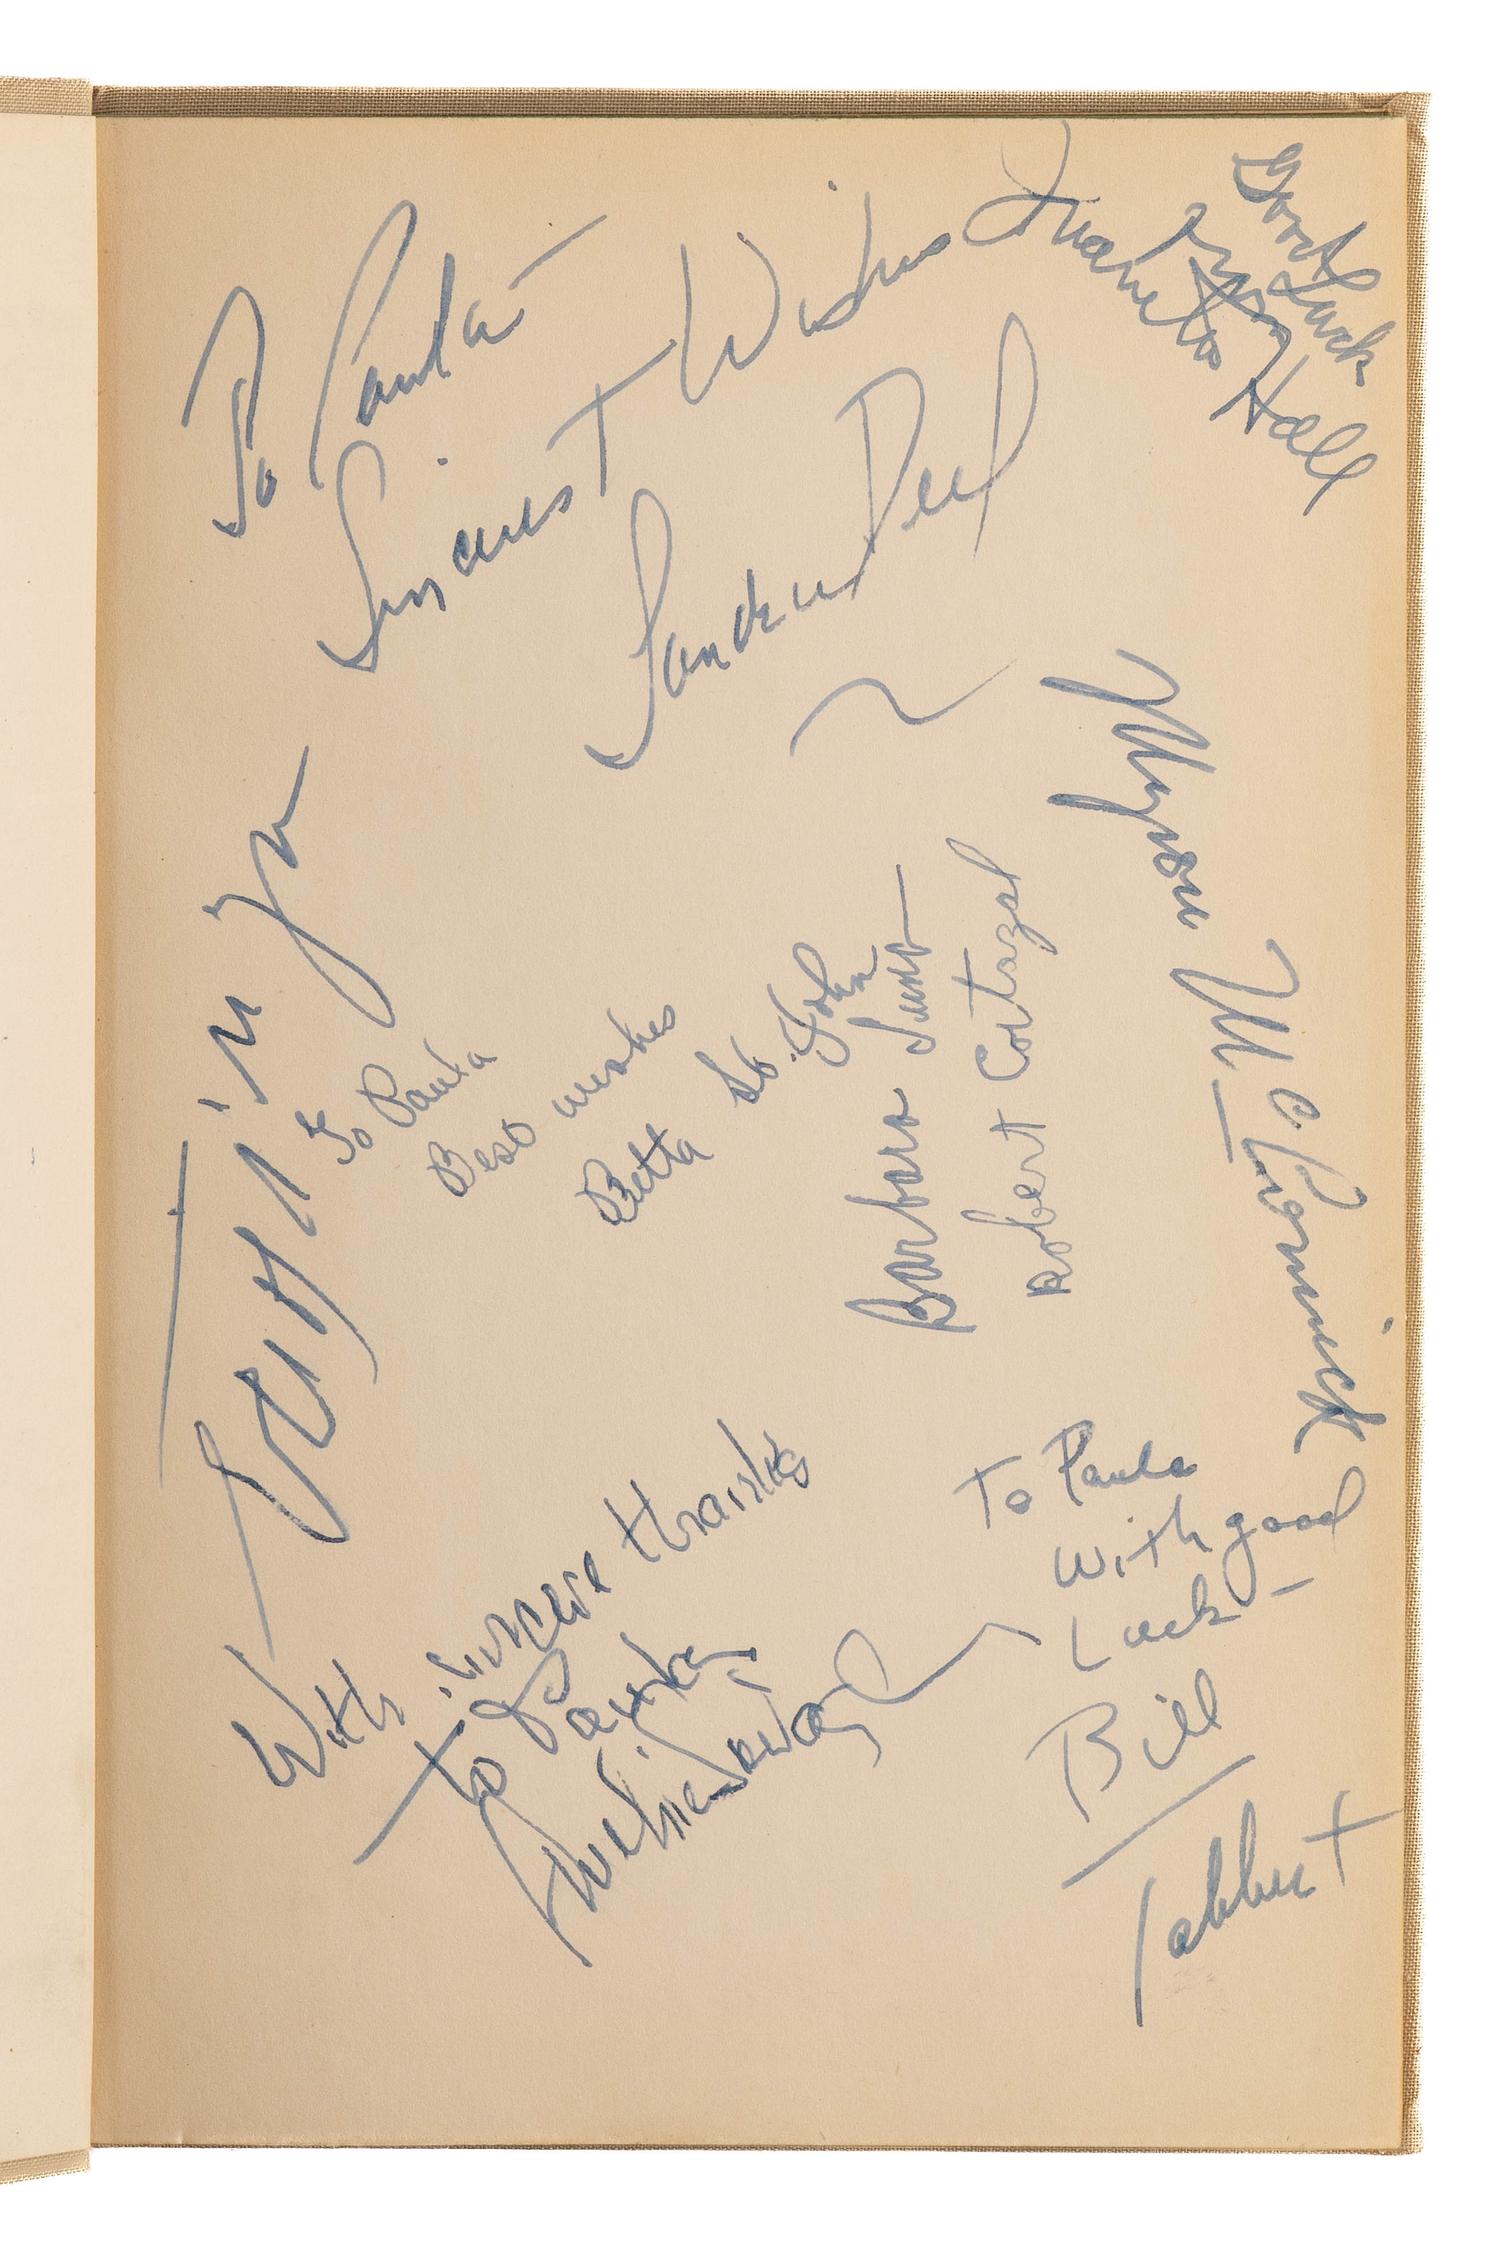 To Paula -
Sincerest Wishes
Sandra Deel
Good Luck
Juanita
Hall
Myron McCormick
Ezio Pinza
To Paula
Best wishes
Betta St. John
Barbara Luna
Robert Cortazal
With sincere thanks
To Paula
To Paula
With good
Luck -
Bill
Tabbert